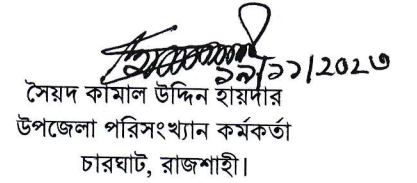 ১৯/১১/2020
সৈয়দ কামাল উদ্দিন হায়দার
উপজেলা পরিসংখ্যান কর্মকর্তা
চারঘাট, রাজশাহী।